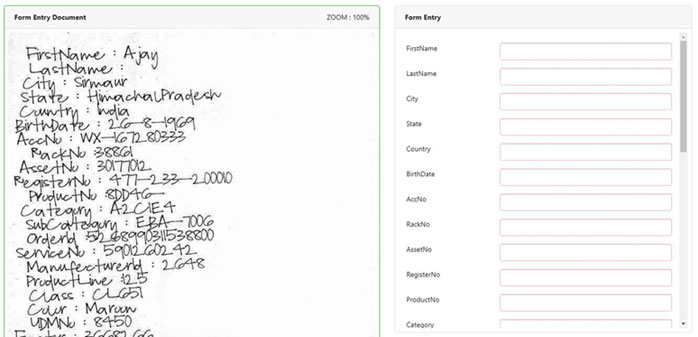 Form Entry Document
ZOOM : 100%
FirstName : Ajay
LastName :
City : Sirmaur
State : HimachalPradesh
Country : India
BirthDate : 26-8-1969
AccNo : WX-167280333
RackNo :38861
AssetNo : 30177012
RegisterNo : 477-233-200010
ProductNo :8DD46
Category : A2C1E4
SubCategory : EBA-7006
OrderId :
ServiceNo : 5901260242
ManufecturerId : 2648
ProductLine :125
Class : CL651
Colur : Maroon
UDMNo : 8450
Form Entry
FirstName
LastName
City
State
Country
BirthDate
AccNo
RackNo
AssetNo
RegisterNo
ProductNo
Category